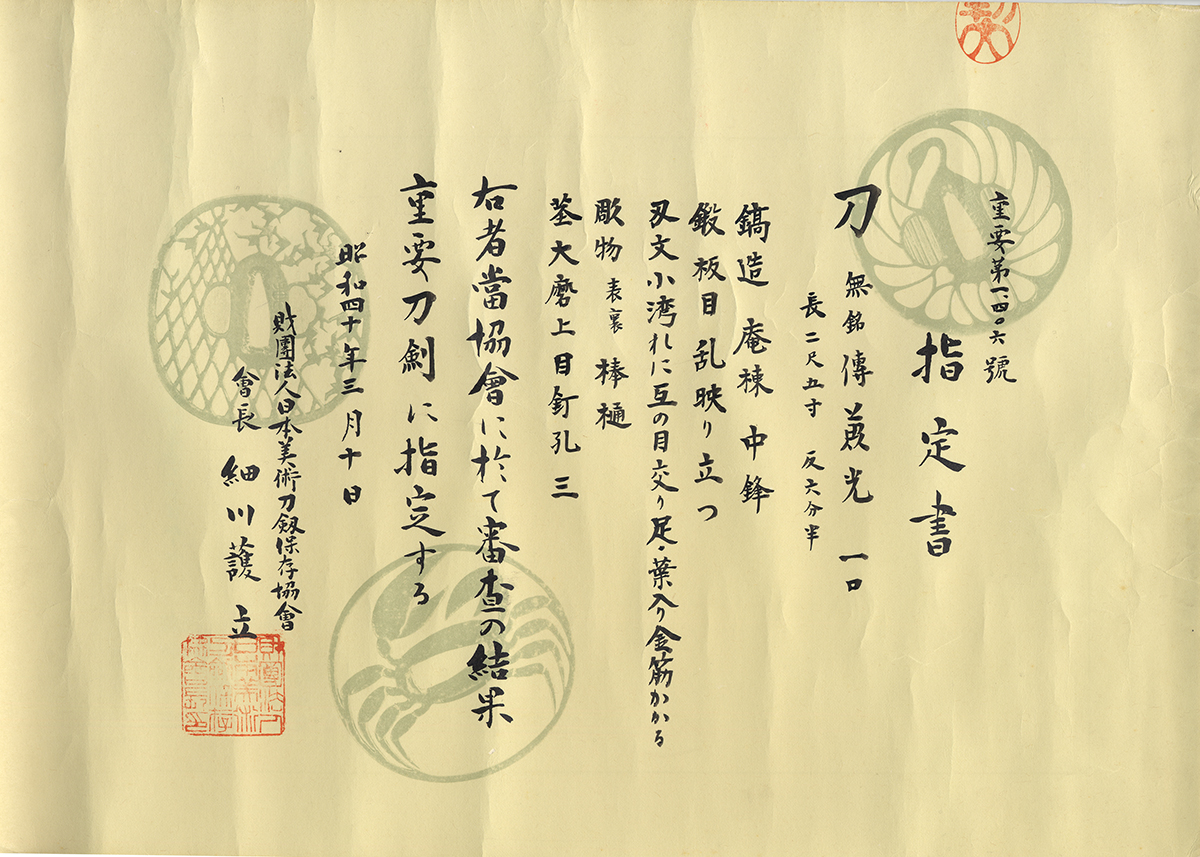 重要第一、四〇六號
指定書
刀 無銘傳兼光 一口
長二尺五寸 反六分半
鎬造 庵棟 中鋒
鍛板目乱映り立つ
刃文小湾れに互の目交り足・葉入り金筋かかる
彫物 表裏 棒樋
茎大磨上目釘孔三
右者當協會に於て審査の結果
重要刀剣に指定する
昭和四十年三月十日
財團法人日本美術刀剱保存協會
會長 細川護立